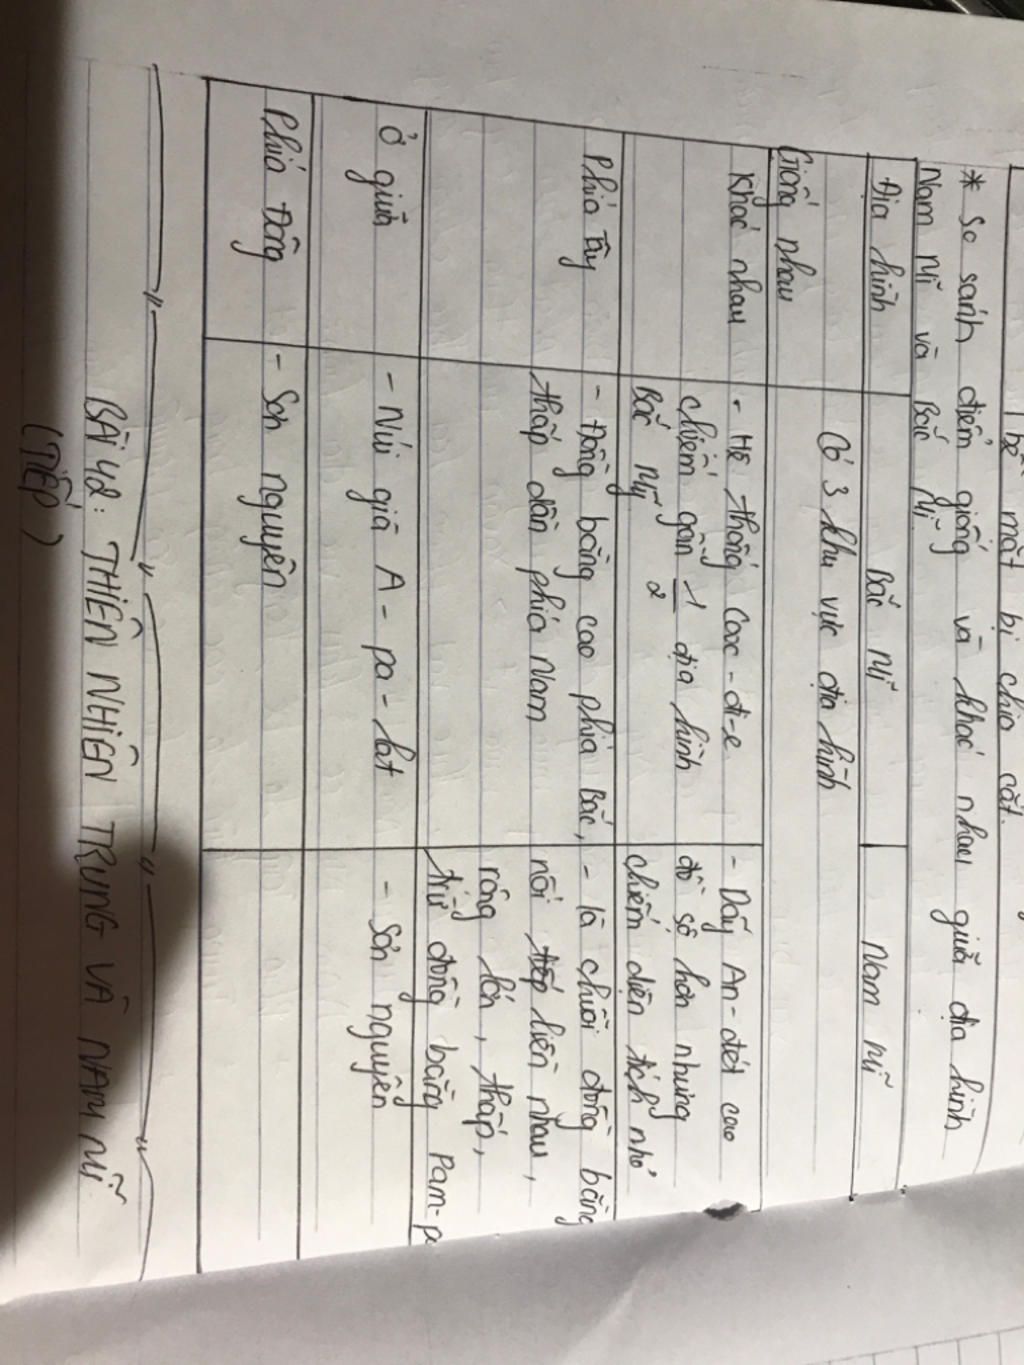 bề mặt bị chia cắt.
* So sánh điểm giống và khác nhau giữa địa hình
Nam Mĩ và Bắc Mĩ
Địa hình Bắc Mĩ Nam Mĩ
Giống nhau Có 3 khu vực địa hình
Khác nhau - Hệ thống Cooc-đi-e - Dãy An-đét cao
chiếm gần 1/2 địa hình đồ sộ hơn nhưng
Bắc Mỹ chiếm diện tích nhỏ
Phía Tây - Đồng bằng cao phía Bắc, - là chuỗi đồng bằng
thấp dần phía Nam nối liền nhau,
rộng lớn, thấp,
trừ đồng bằng Pam-pa
Ở giữa - Núi già A-pa-lat - Sơn nguyên
Phía Đông - Sơn nguyên
BÀI 42: THIÊN NHIÊN TRUNG VÀ NAM MĨ
(TIẾP)